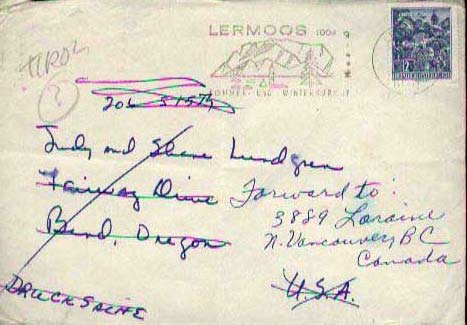 LERMOOS 1004
SOMMER- UND WINTERSPORT
TIROL
?
206 S 15th
Judy and Shane Lundgren
Fairway Drive
Bend, Oregon
Forward to:
3889 Loraine
N. Vancouver, BC
Canada
U.S.A.
DRUCKSACHE